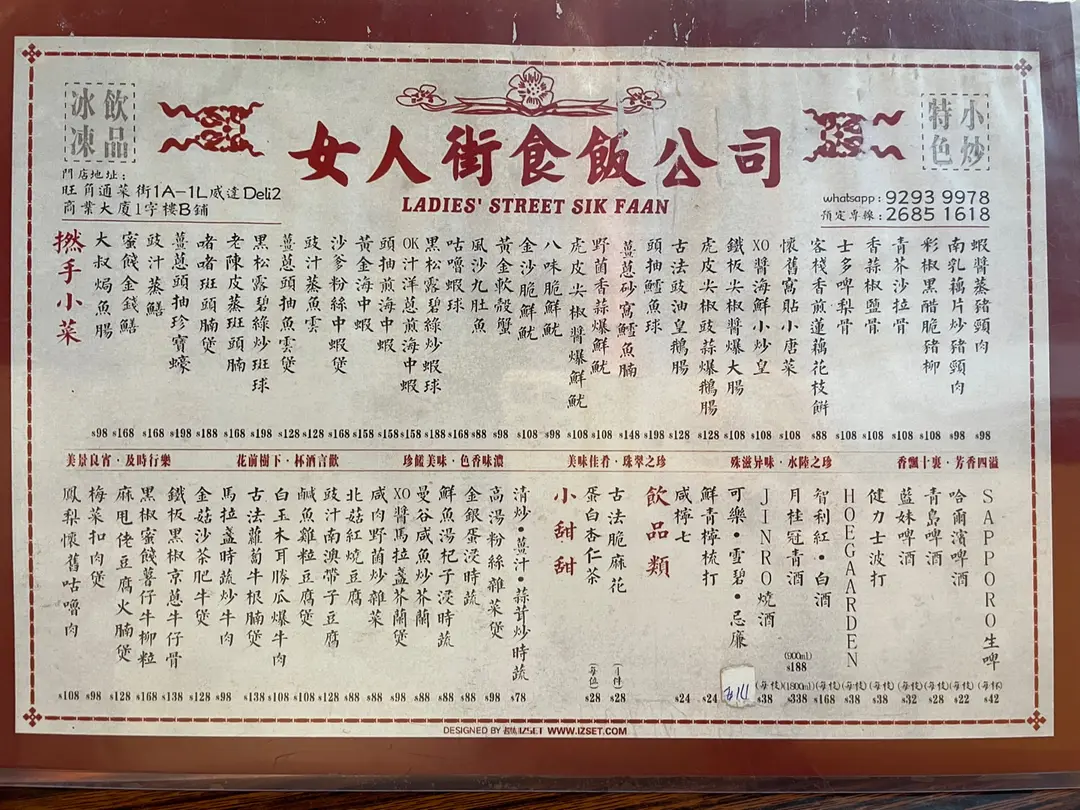 冰凍飲品
女人街食飯公司
LADIES' STREET SIK FAAN
特色小炒
門店地址：
旺角通菜街1A-1L威達Deli2
商業大廈1字樓B鋪
whatsapp : 9293 9978
預定專線 : 2685 1618
撚手小菜
大叔焗魚腸 $98
蜜餞金錢鱔 $168
豉汁蒸鱔 $168
薑蔥頭抽珍寶蠔 $198
啫啫班頭腩煲 $188
老陳皮蒸班頭腩 $168
黑松露碧綠炒班球 $198
薑蔥頭抽魚雲煲 $128
豉汁蒸魚雲 $128
沙爹粉絲中蝦煲 $168
黃金海中蝦 $158
頭抽煎海中蝦 $158
OK汁洋蔥煎海中蝦 $158
黑松露碧綠炒蝦球 $188
咕嚕蝦球 $168
風沙九肚魚 $88
黃金軟殼蟹 $98
金沙脆鮮魷 $108
八味脆鮮魷 $98
虎皮尖椒醬爆鮮魷 $108
野菌香蒜爆鮮魷 $108
薑蔥砂窩鱈魚腩 $148
頭抽鱈魚球 $198
古法豉油皇鵝腸 $128
虎皮尖椒豉蒜爆鵝腸 $128
鐵板尖椒醬爆大腸 $108
XO醬海鮮小炒皇 $108
懷舊窩貼小唐菜 $108
客棧香煎蓮藕花枝餅 $88
士多啤梨骨 $108
香蒜椒鹽骨 $108
青芥沙拉骨 $108
彩椒黑醋脆豬柳 $108
南乳藕片炒豬頸肉 $98
蝦醬蒸豬頸肉 $98
美景良宵·及時行樂
花前樹下·杯酒言歡
珍饈美味·色香味濃
美味佳肴·珠翠之珍
殊滋异味·水陸之珍
香飄十裏·芳香四溢
鳳梨懷舊咕嚕肉 $108
梅菜扣肉煲 $98
麻甩佬豆腐火腩煲 $128
黑椒蜜餞薯仔牛柳粒 $168
鐵板黑椒京蔥牛仔骨 $138
金菇沙茶肥牛煲 $128
馬拉盞時蔬炒牛肉 $98
古法蘿蔔牛根腩煲 $138
白玉木耳勝瓜爆牛肉 $108
鹹魚雞粒豆腐煲 $108
豉汁南澳帶子豆腐 $128
北菇紅燒豆腐 $88
咸肉野菌炒雜菜 $88
XO醬馬拉盞芥蘭煲 $98
曼谷咸魚炒芥蘭 $88
鮮魚湯杞子浸時蔬 $88
金銀蛋浸時蔬 $88
高湯粉絲雜菜煲 $98
清炒·薑汁·蒜茸炒時蔬 $78
小甜甜
蛋白杏仁茶 (每位) $28
古法脆麻花 $28
飲品類
咸檸七 $24
鮮青檸梳打 $24
可樂·雪碧·忌廉
JINRO燒酒 (每枝) $38
月桂冠青酒 (900ml) $188 (1800ml) $338
智利紅·白酒 (每枝) $168
HOEGAARDEN (每枝) $38
健力士波打 (每枝) $38
藍妹啤酒 (每枝) $32
青島啤酒 (每枝) $28
哈爾濱啤酒 (每枝) $22
SAPPORO生啤 (每杯) $42
DESIGNED BY IZSET WWW.IZSET.COM